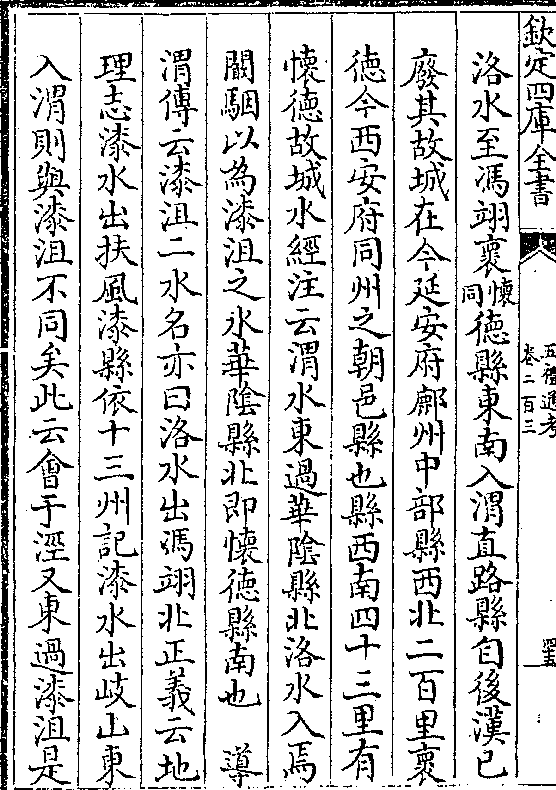 欽定四庫全書
五禮通考
卷二百三
洛水至馮翊褱懷同德縣東南入渭直路縣自後漢已
廢其故城在今延安府鄜州中部縣西北二百里褱
德今西安府同州之朝邑縣也縣西南四十三里有
懷德故城水經注云渭水東過華隂縣北洛水入焉
闞駰以為漆沮之水華隂縣北即懷德縣南也　導
渭傳云漆沮二水名亦曰洛水出馮翊北正義云地
理志漆水出扶風漆縣依十三州記漆水出岐山東
入渭則與漆沮不同矣此云會于涇又東過漆沮是